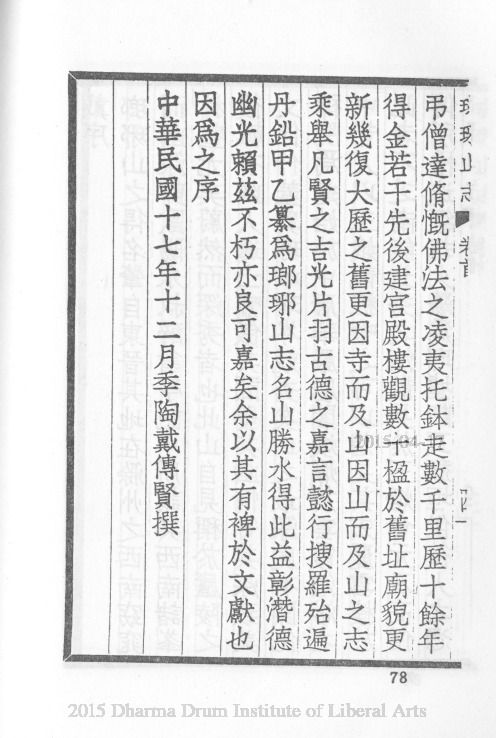 瑯琊山志 卷首
弔僧達脩慨佛法之凌夷托鉢走數千里歷十餘年
得金若干先後建宮殿樓觀數十楹於舊址廟貌更
新幾復大歷之舊更因寺而及山因山而及山之志
乘舉凡賢之吉光片羽古德之嘉言懿行搜羅殆遍
丹鉛甲乙纂爲瑯琊山志名山勝水得此益彰潛德
幽光賴茲不朽亦良可嘉矣余以其有裨於文獻也
因爲之序
中華民國十七年十二月季陶戴傳賢撰
78
2015 Dharma Drum Institute of Liberal Arts